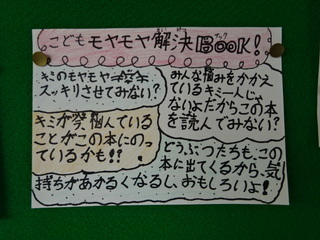 こどもモヤモヤ解決BOOK!
キミのモヤモヤ
スッキリさせてみない?
みんな悩みをかかえ
ているキミ一人じゃ
ないよだからこの本
を読んでみない?
キミが今、悩んでいる
ことがこの本にのっ
ているかも!?
どうぶつたちも、この
本に出てくるから、気
持ちがあかるくなるし、おもしろいよ!